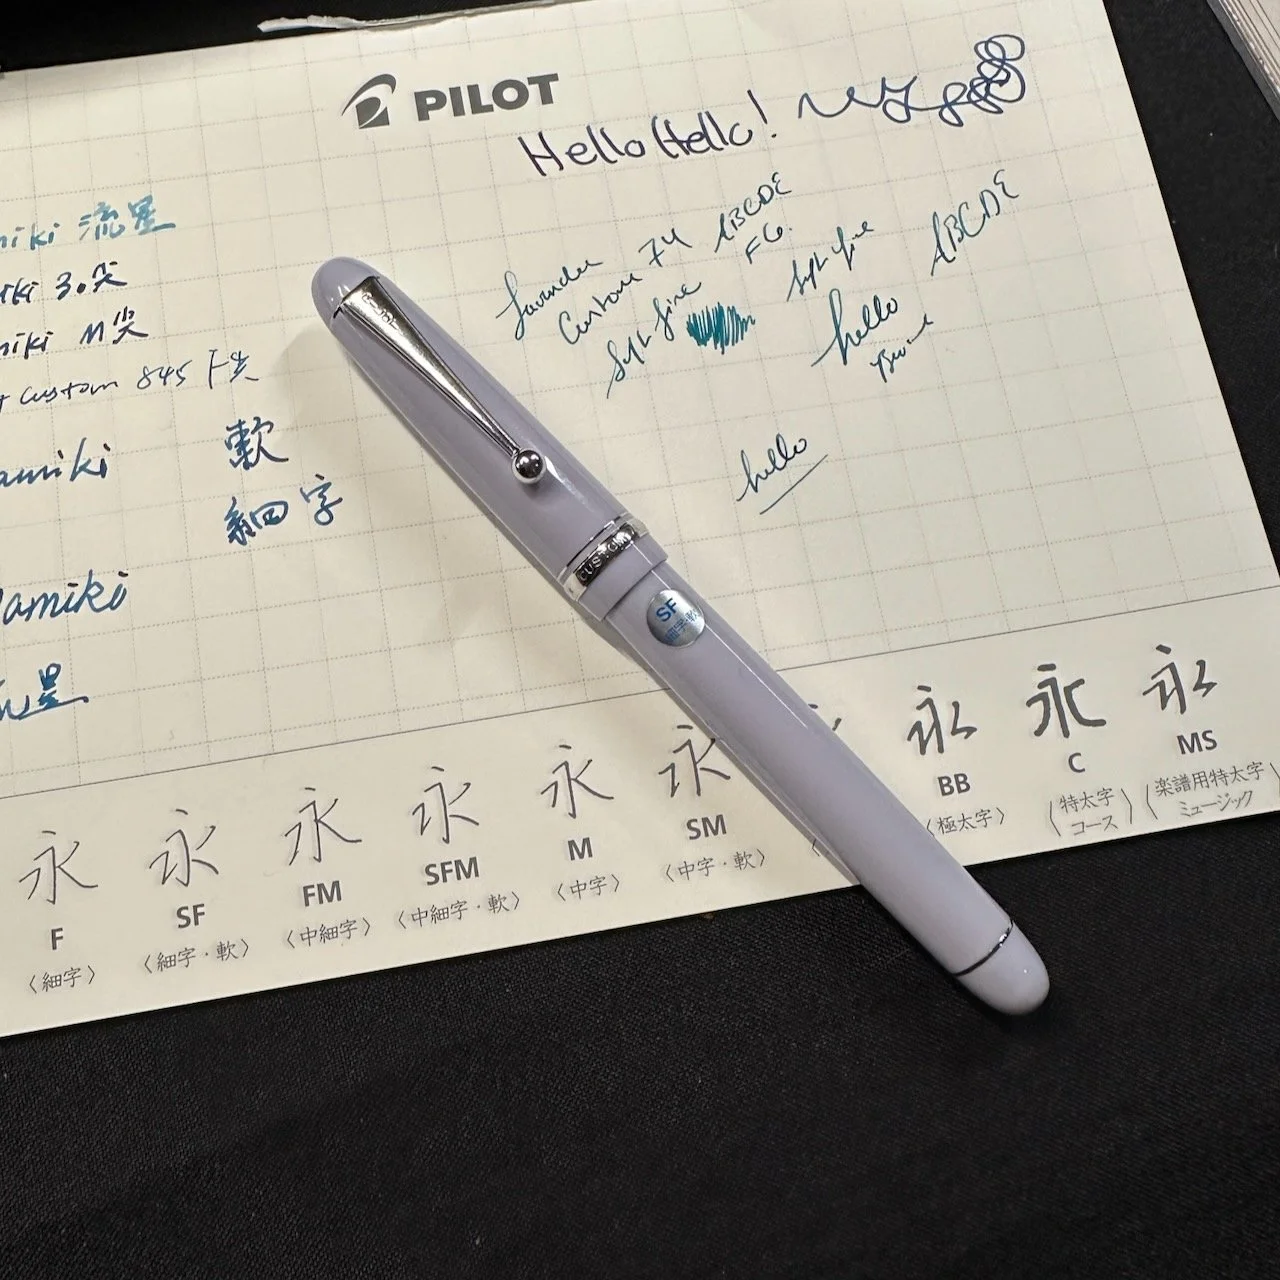 PILOT
Hello Hello!
miki 流星
miki 3.0尖
miki M尖
custom 845 F尖
amiki 軟
細字
Namiki
流星
Lavender
Custom 74 ABCDE
FG.
Soft fine
Soft fine ABCDE
hello
hello
CUSTOM
SF
細字・軟
永 永 永 永 永 永 永 永 永
F SF FM SFM M SM BB C MS
〈細字〉 〈細字・軟〉 〈中細字〉 〈中細字・軟〉 〈中字〉 〈中字・軟〉 〈極太字〉 〈特太字 コース〉 〈楽譜用特太字 ミュージック〉